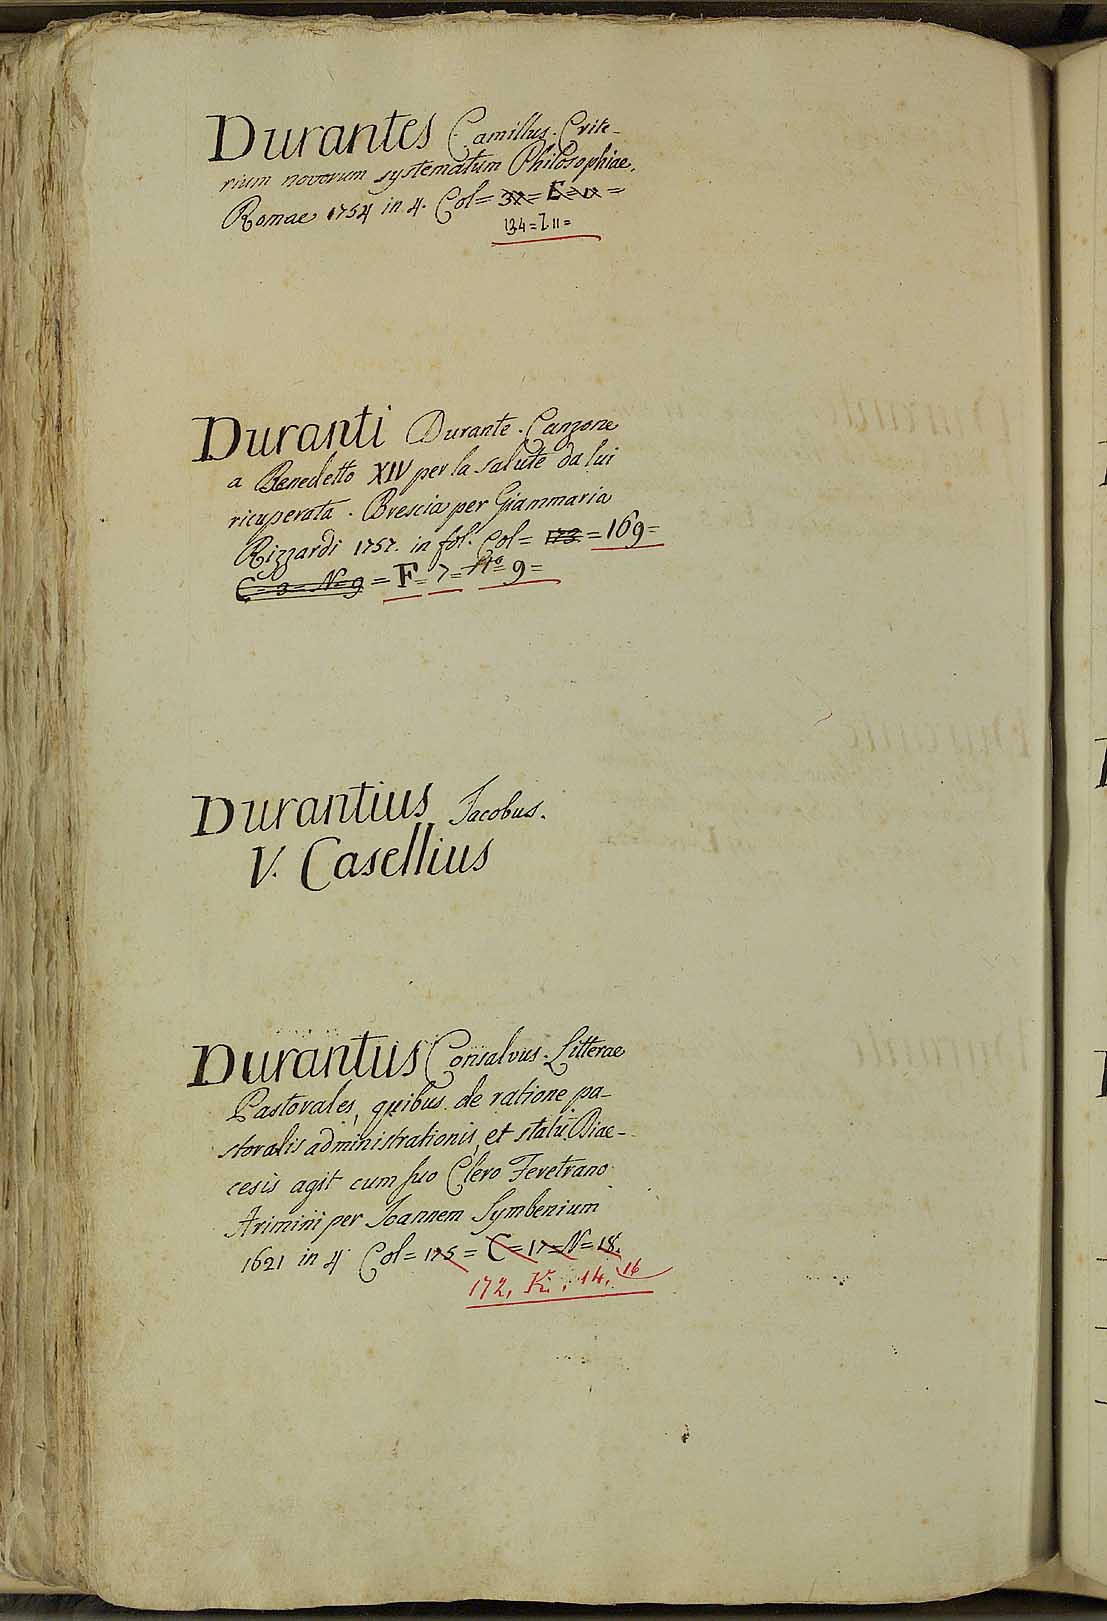 Durantes Camillus. Crite-
rium novorum systematum Philosophiae.
Romae 1754 in 4. Col= 37= E= 11=
134= I 11=
Duranti Durante. Canzone
a Benedetto XIV per la salute da lui
ricuperata. Brescia per Giammaria
Rizzardi 1757. in fol. Col= 173= 169=
C= 3= N= 9= F= 7= No= 9=
Durantius Jacobus.
V. Casellius
Durantus Consalvus. Litterae
Pastorales, quibus de ratione pa-
storalis administrationis, et statu Diae-
cesis agit cum suo Clero Feretrano
Arimini per Joannem Symbenium
1621 in 4. Col= 175= C= 17= N= 18.
172, K., 14, 16